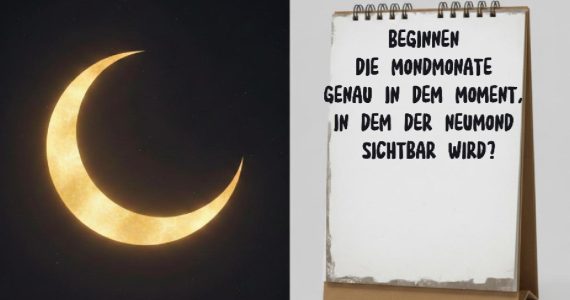 BEGINNEN
DIE MONDMONATE
GENAU IN DEM MOMENT,
IN DEM DER NEUMOND
SICHTBAR WIRD?